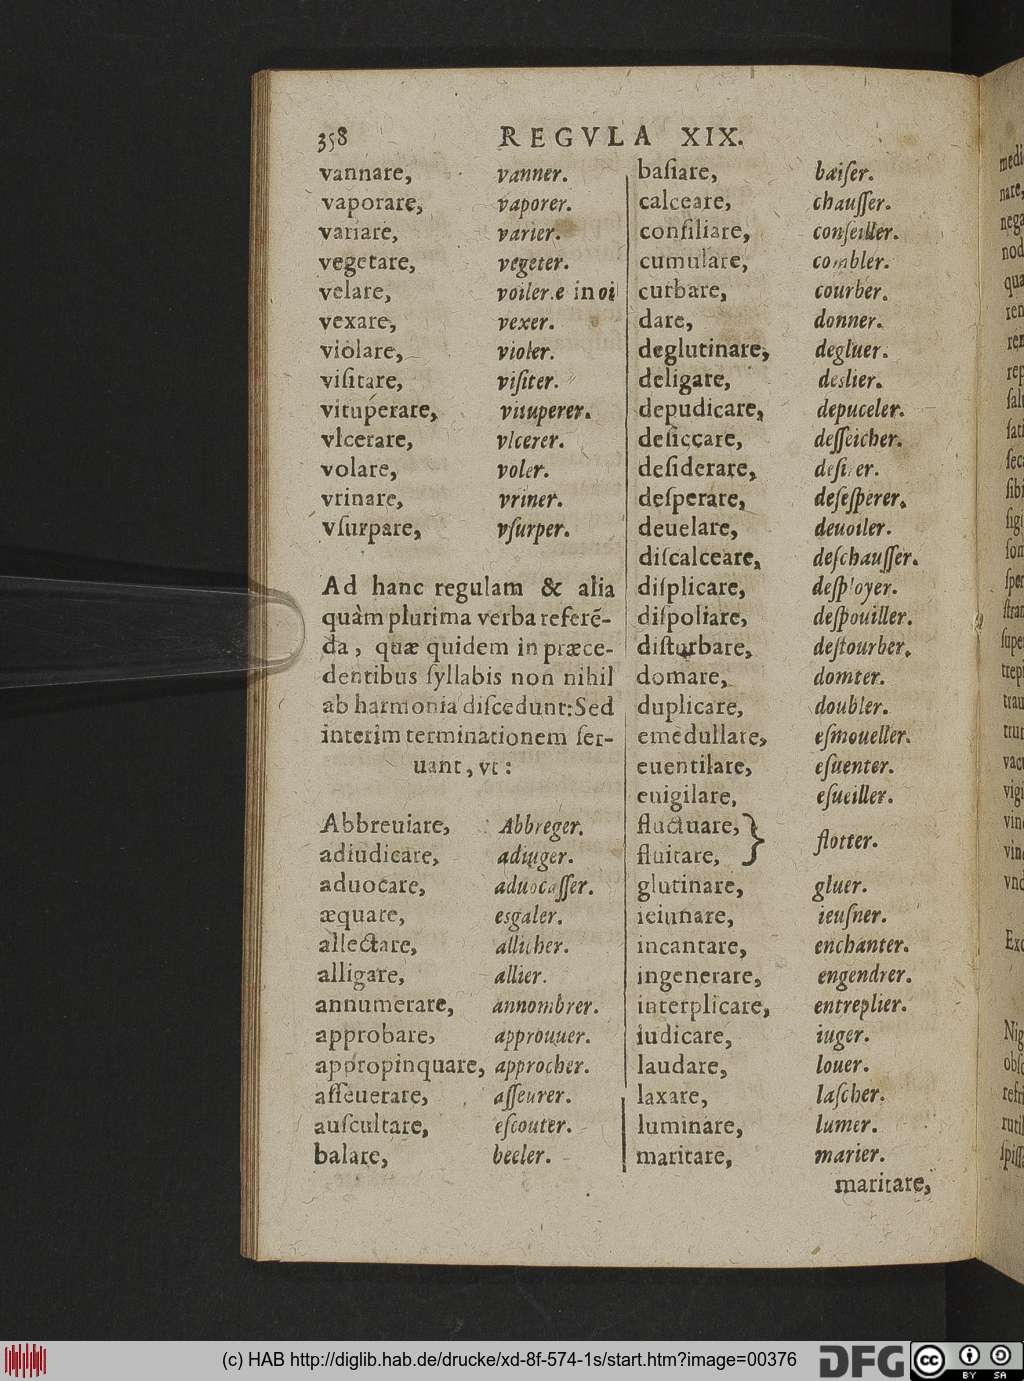 358 REGVLA XIX.
vannare, vanner.
vaporare, vaporer.
variare, varier.
vegetare, vegeter.
velare, voiler. e in oi
vexare, vexer.
violare, violer.
viſitare, viſiter.
vituperare, vituperer.
vlcerare, vlcerer.
volare, voler.
vrinare, vriner.
vſurpare, vſurper.
Ad hanc regulam & alia
quàm plurima verba referẽ-
da, quæ quidem in præce-
dentibus ſyllabis non nihil
ab harmonia diſcedunt: Sed
interim terminationem ſer-
uant, vt:
Abbreuiare, Abbreger.
adiudicare, adiuger.
aduocare, aduocaſſer.
æquare, esgaler.
allectare, allicher.
alligare, allier.
annumerare, annombrer.
approbare, approuuer.
appropinquare, approcher.
aſſeuerare, aſſeurer.
auſcultare, eſcouter.
balare, beeler.
baſiare, baiſer.
calceare, chauſſer.
conſiliare, conſeiller.
cumulare, combler.
curbare, courber.
dare, donner.
deglutinare, degluer.
deligare, deslier.
depudicare, depuceler.
deſiccare, deſſeicher.
deſiderare,
deſperare, deſeſperer.
deuelare, deuoiler.
diſcalceare, deſchauſſer.
diſplicare, deſployer.
diſpoliare, deſpouiller.
diſturbare, deſtourber.
domare, domter.
duplicare, doubler.
emedullare, eſmoueller.
euentilare, eſuenter.
euigilare, eſueiller.
fluctuare, } flotter.
fluitare,
glutinare, gluer.
ieiunare, ieuſner.
incantare, enchanter.
ingenerare, engendrer.
interplicare, entreplier.
iudicare, iuger.
laudare, louer.
laxare, laſcher.
luminare, lumer.
maritare, marier.
maritare,
(c) HAB http://diglib.hab.de/drucke/xd-8f-574-1s/start.htm?image=00376
DFG
cc BY SA